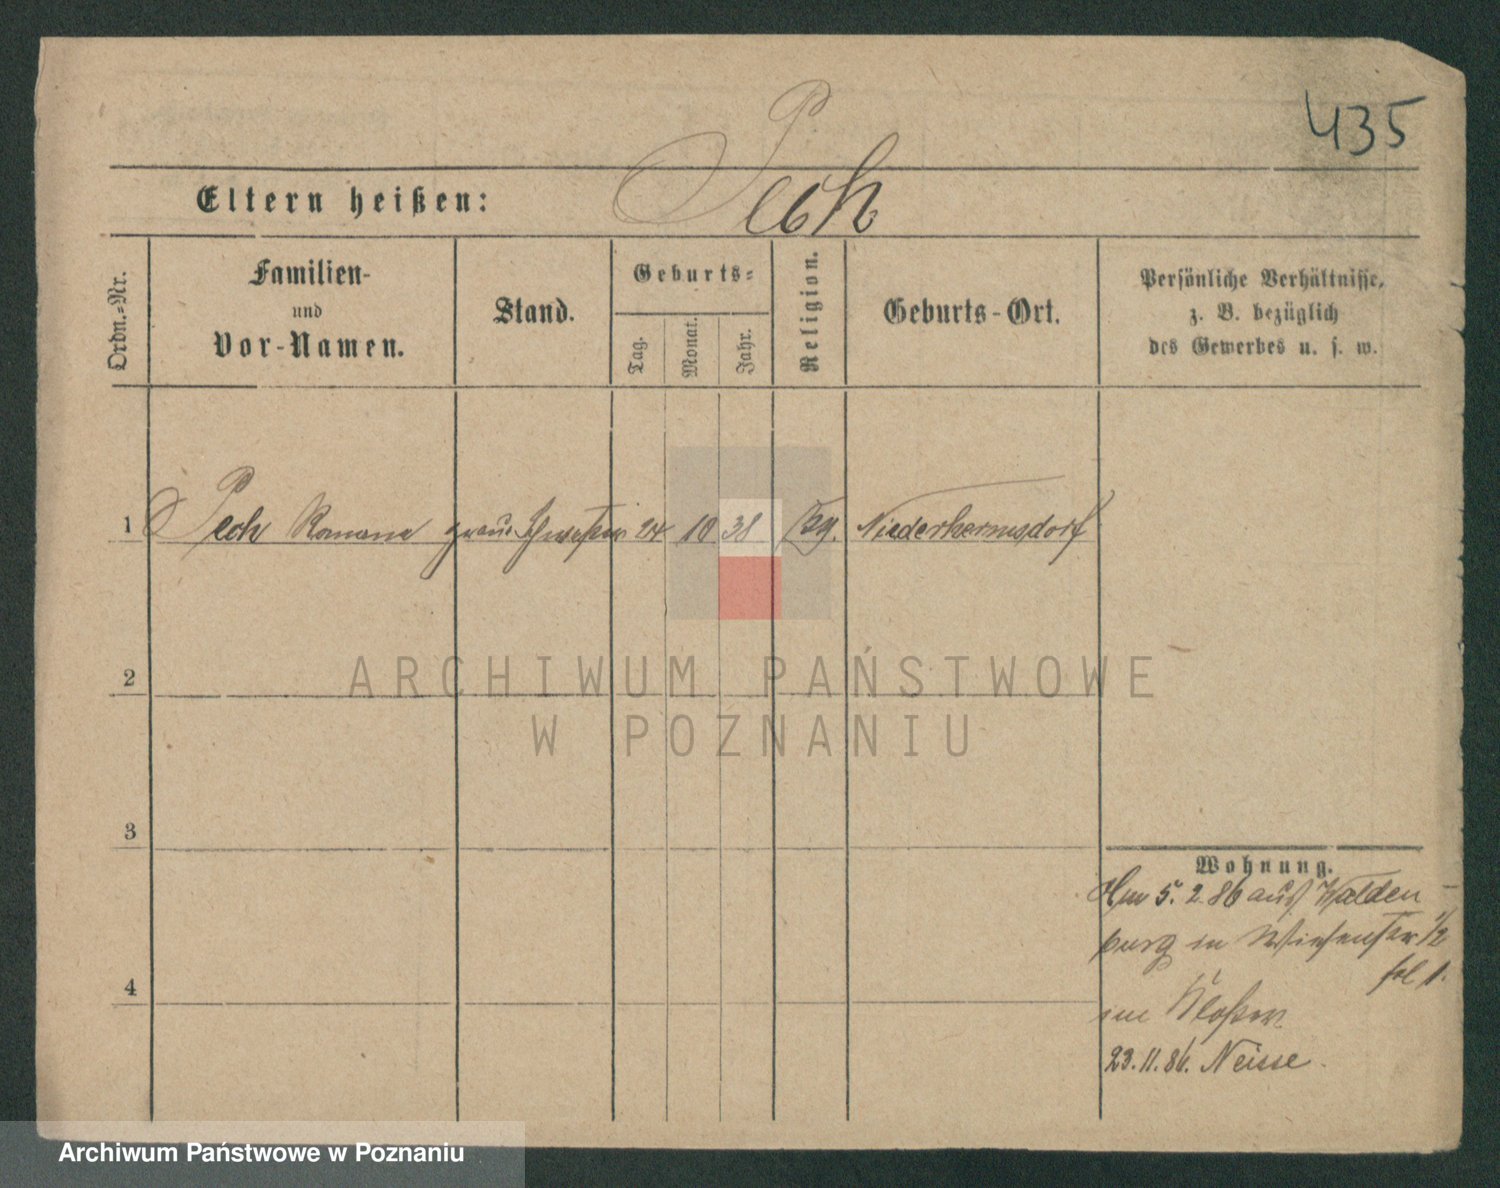 435
Eltern heißen: Pech
Ordn.-Nr.
Familien-
und
Vor-Namen.
Stand.
Geburts-
Tag.
Monat.
Jahr.
Religion.
Geburts-Ort.
Persönliche Verhältnisse,
z. B. bezüglich
des Gewerbes u. s. w.
1 Pech Romana graue Schwester 24 10 38 Niederhermsdorf
2
3
4
Wohnung.
5. 2. 86 aus Walden-
burg in Wiesenstr 1/2
fol 1.
im Kloster
23. 11. 86. Neisse.
ARCHIWUM PAŃSTWOWE
W POZNANIU
Archiwum Państwowe w Poznaniu